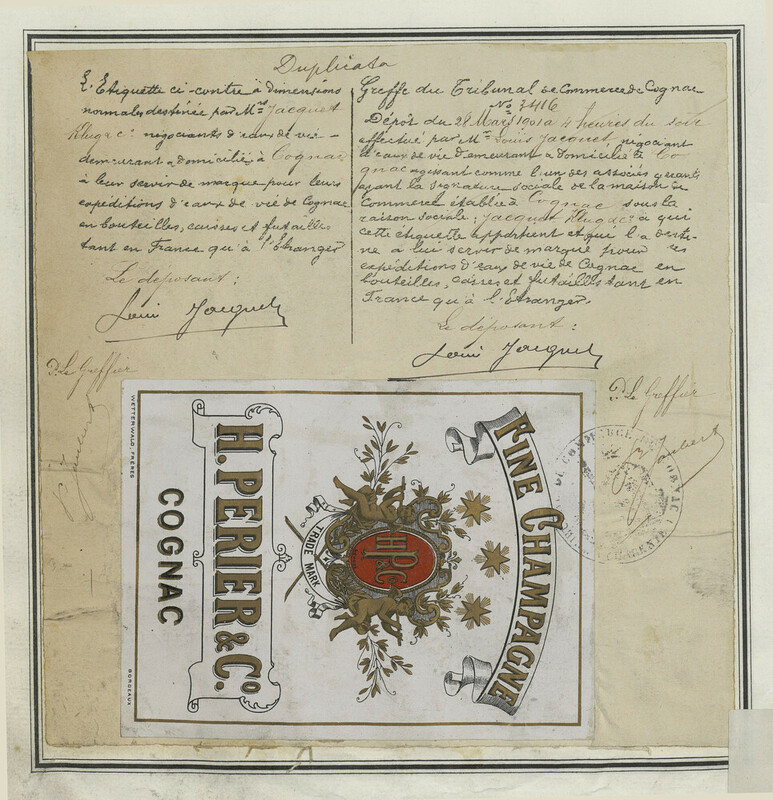 Duplicata
L'Etiquette ci-contre à dimensions
normales destinée par Mrs Jacquet
Klug & Cie négociants d'eaux de vie
demeurant & domiciliés à Cognac
à leur servir de marque pour leurs
expéditions d'eaux de vie de Cognac
en bouteilles, caisses et futailles
tant en France qu'à l'Etranger
Le déposant :
Louis Jacquet
P. Le Greffier
Joubert
Greffe du Tribunal de Commerce de Cognac
No 3416
Dépôt du 28 Mars 1901 à 4 heures du soir
effectué par Mr Louis Jacquet, négociant
d'eaux de vie demeurant & domicilié à Co
gnac agissant comme l'un des associés gérants
ayant la signature sociale de la maison de
Commerce établie à Cognac sous la
raison sociale : Jacquet Klug & Cie à qui
cette étiquette appartient et qui l'a desti-
née à lui servir de marque pour ses
expéditions d'eaux de vie de Cognac en
bouteilles, caisses et futailles tant en
France qu'à l'Etranger.
Le déposant :
Louis Jacquet
P. Le Greffier
Joubert
FINE CHAMPAGNE
HP&C
TRADE MARK
H. PERIER & Co.
COGNAC
WETTERWALD FRÈRES
BORDEAUX